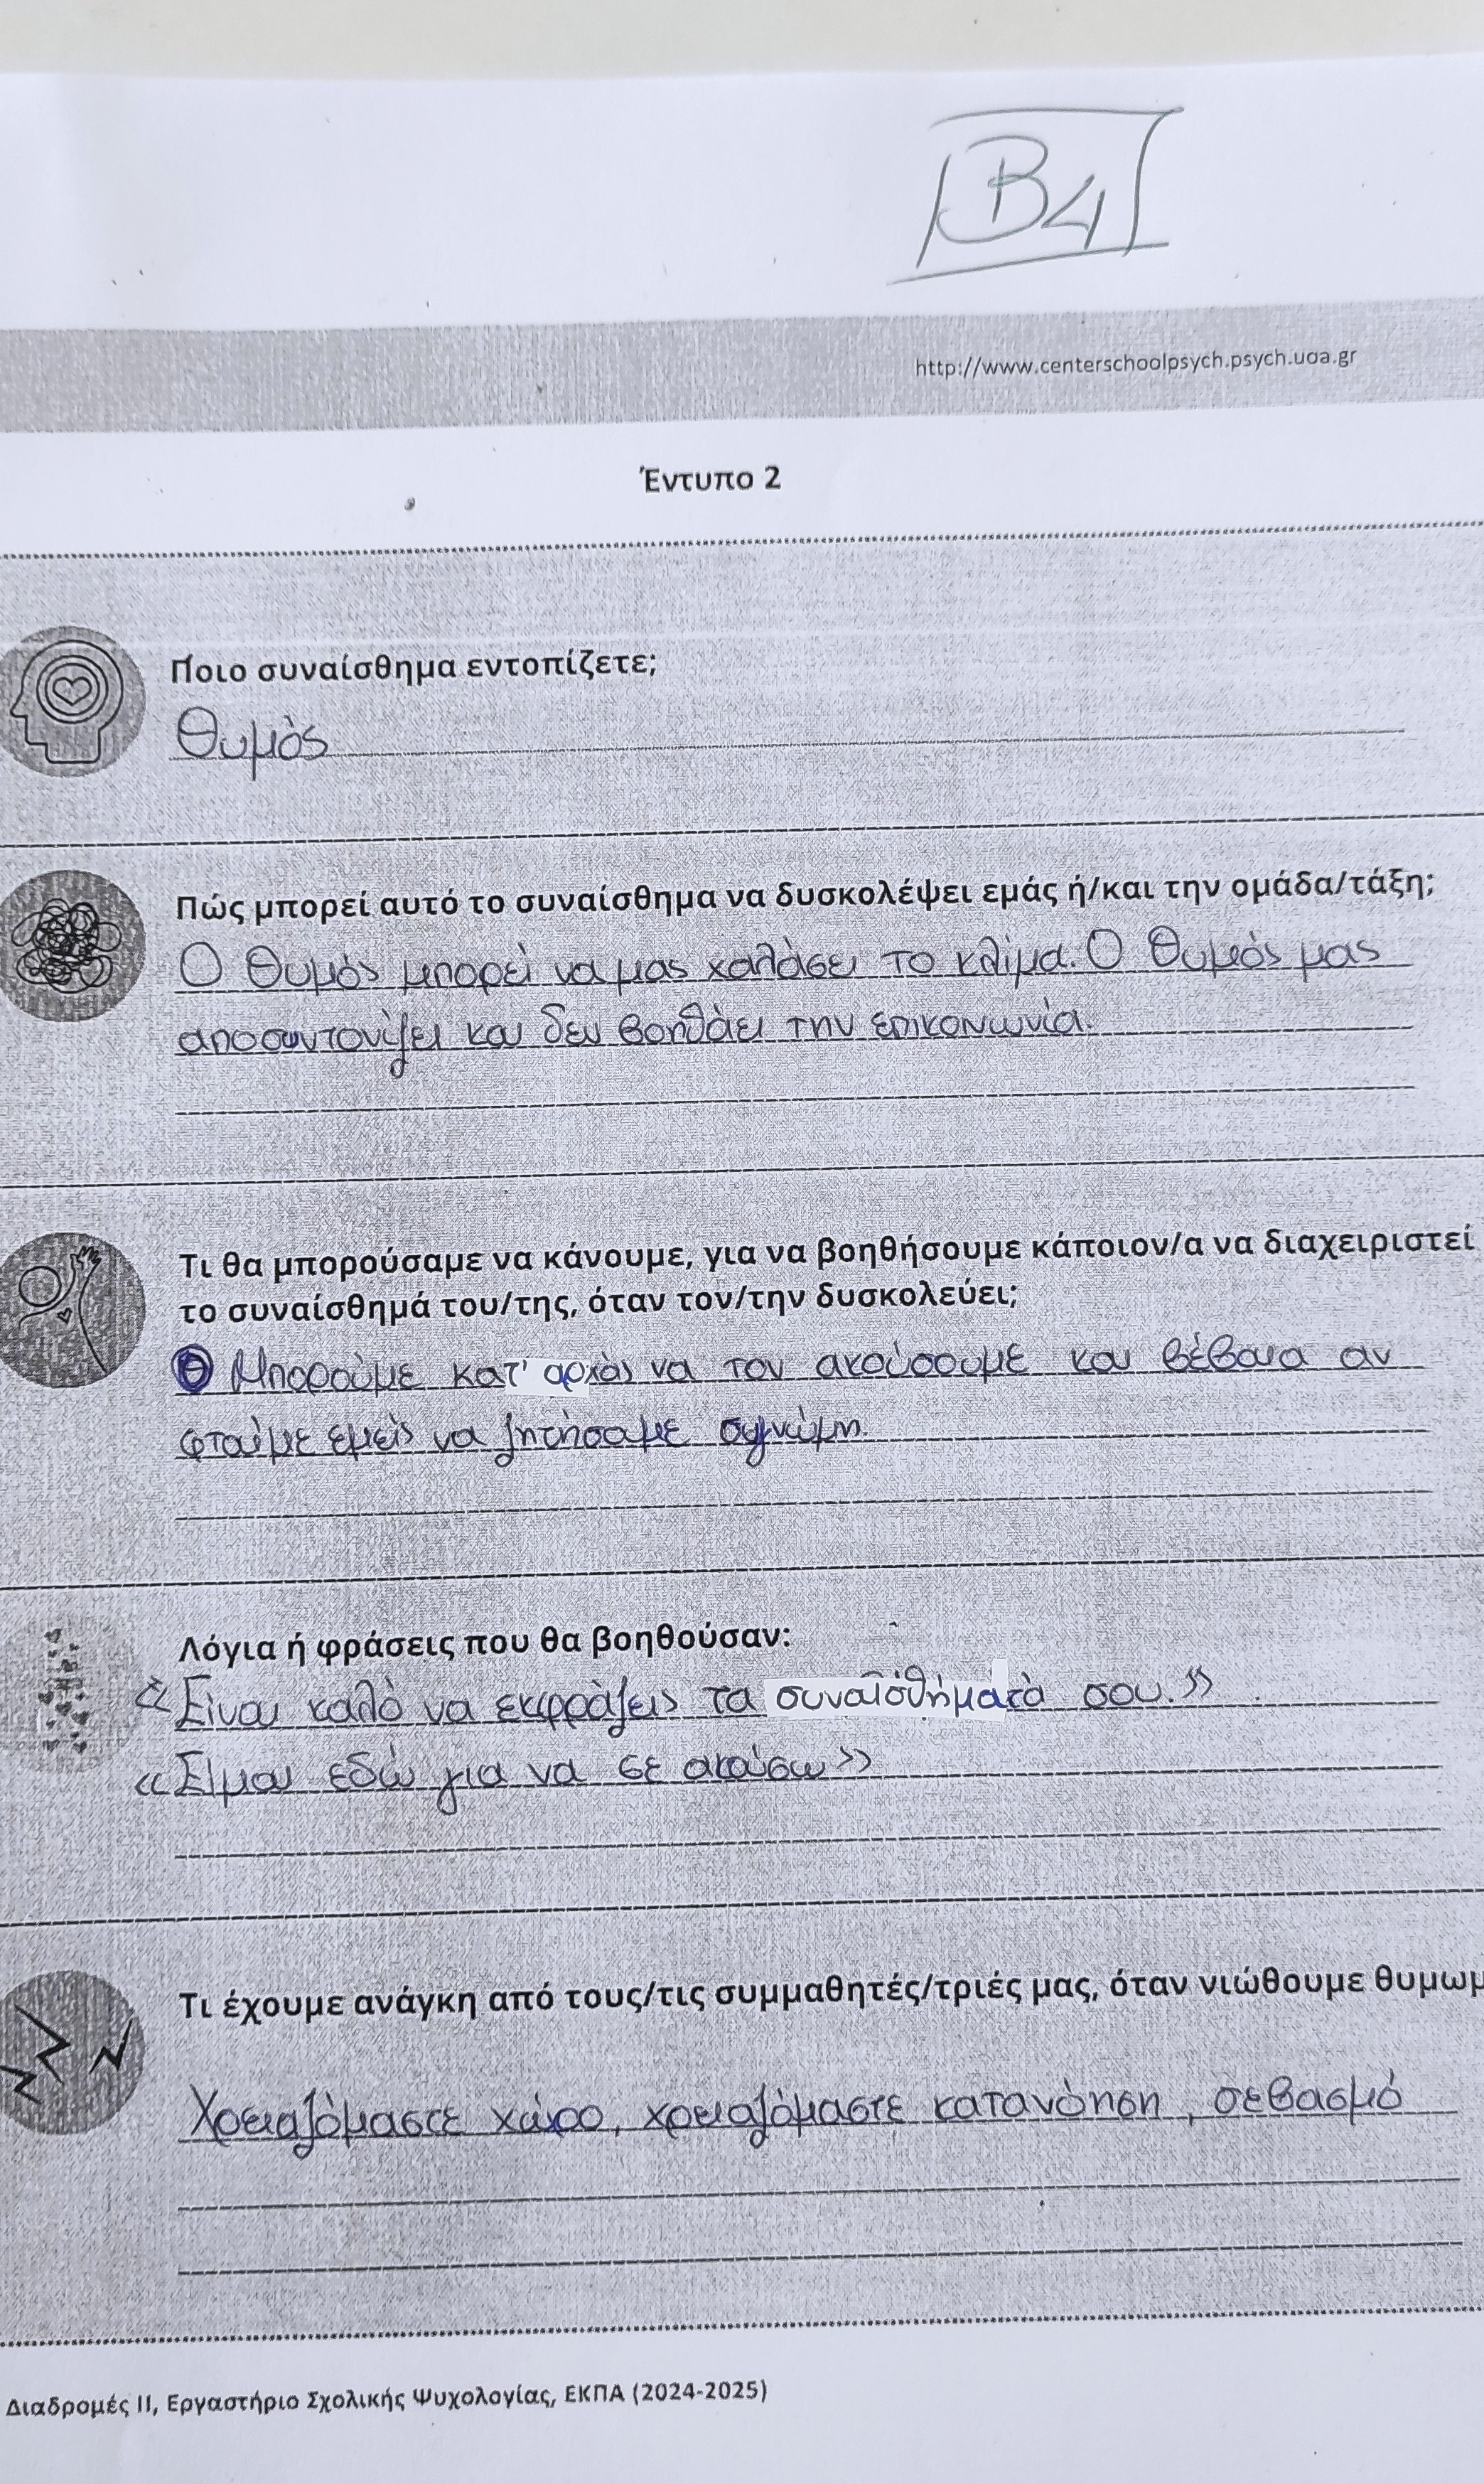 B4
http://www.centerschoolpsych.psych.uoa.gr
Έντυπο 2
Ποιο συναίσθημα εντοπίζετε;
Θυμός
Πώς μπορεί αυτό το συναίσθημα να δυσκολέψει εμάς ή/και την ομάδα/τάξη;
Ο θυμός μπορεί να μας χαλάσει το κλίμα. Ο θυμός μας
αποσυντονίζει και δεν βοηθάει την επικονωνία.
Τι θα μπορούσαμε να κάνουμε, για να βοηθήσουμε κάποιον/α να διαχειριστεί
το συναίσθημά του/της, όταν τον/την δυσκολεύει;
Μπορούμε κατ' αρχάς να τον ακούσουμε και βέβαια αν
φταίμε εμείς να ζητήσουμε συγνώμη.
Λόγια ή φράσεις που θα βοηθούσαν:
«Είναι καλό να εκφράζεις τα συναισθήματά σου.»
«Είμαι εδώ για να σε ακούσω»
Τι έχουμε ανάγκη από τους/τις συμμαθητές/τριές μας, όταν νιώθουμε θυμωμ
Χρειαζόμαστε χώρο, χρειαζόμαστε κατανόηση, σεβασμό
Διαδρομές ΙΙ, Εργαστήριο Σχολικής Ψυχολογίας, ΕΚΠΑ (2024-2025)